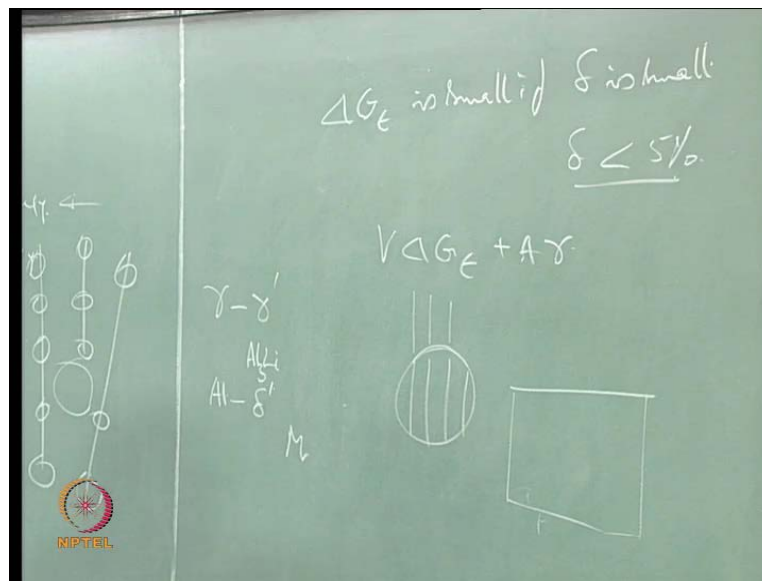 ΔG_ε is small if δ is small
δ < 5%.
VΔG_ε + Aγ
γ - γ'
Al₃Li
Al - δ'
NPTEL